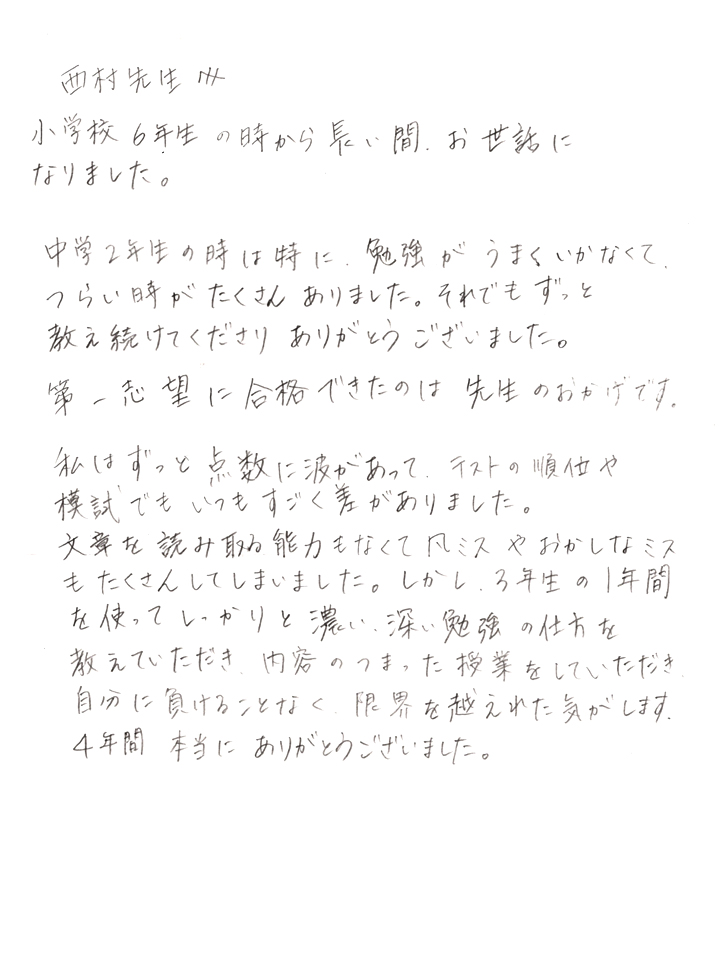 西村先生へ
小学校6年生の時から長い間、お世話に
なりました。
中学2年生の時は特に、勉強がうまくいかなくて、
つらい時がたくさんありました。それでもずっと
教え続けてくださりありがとうございました。
第一志望に合格できたのは先生のおかげです。
私はずっと点数に波があって、テストの順位や
模試でもいつもすごく差がありました。
文章を読み取る能力もなくて凡ミスやおかしなミス
もたくさんしてしまいました。しかし、3年生の1年間
を使ってしっかりと濃い、深い勉強の仕方を
教えていただき、内容のつまった授業をしていただき
自分に負けることなく、限界を越えれた気がします。
4年間本当にありがとうございました。